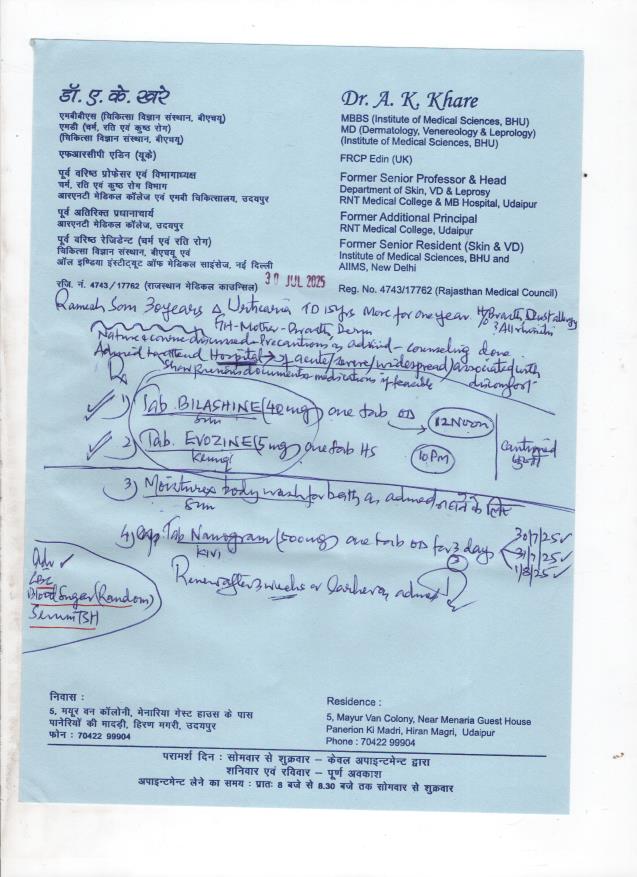 डॉ. ए. के. खरे
एमबीबीएस (चिकित्सा विज्ञान संस्थान, बीएचयू)
एमडी (चर्म, रति एवं कुष्ठ रोग)
(चिकित्सा विज्ञान संस्थान, बीएचयू)
एफआरसीपी एडिन (यूके)
पूर्व वरिष्ठ प्रोफेसर एवं विभागाध्यक्ष
चर्म, रति एवं कुष्ठ रोग विभाग
आरएनटी मेडिकल कॉलेज एवं एमबी चिकित्सालय, उदयपुर
पूर्व अतिरिक्त प्रधानाचार्य
आरएनटी मेडिकल कॉलेज, उदयपुर
पूर्व वरिष्ठ रेजिडेन्ट (चर्म एवं रति रोग)
चिकित्सा विज्ञान संस्थान, बीएचयू एवं
ऑल इण्डिया इंस्टीट्यूट ऑफ मेडिकल साइंसेज, नई दिल्ली
रजि. नं. 4743/17762 (राजस्थान मेडिकल काउन्सिल)
Dr. A. K. Khare
MBBS (Institute of Medical Sciences, BHU)
MD (Dermatology, Venereology & Leprology)
(Institute of Medical Sciences, BHU)
FRCP Edin (UK)
Former Senior Professor & Head
Department of Skin, VD & Leprosy
RNT Medical College & MB Hospital, Udaipur
Former Additional Principal
RNT Medical College, Udaipur
Former Senior Resident (Skin & VD)
Institute of Medical Sciences, BHU and
AIIMS, New Delhi
Reg. No. 4743/17762 (Rajasthan Medical Council)
30 JUL 2025
Ramesh 30 years Δ Urticaria TD 15yrs More for one year H/o Dust allergy
F/H - Mother -
Nature & course discussed - Precautions as advised - counseling done
Hospital → if acute/severe/widespread/associated with
Show previous documents medications if feasible discomfort
Rx
1) Tab. BILASHINE (40mg) one tab OD → 12 Noon
Sun
2) Tab. EVOZINE (5mg) one tab HS 10 Pm
3) Moisturex body wash for bath as advised नहाने के लिए
Sun
4) Tab (500mg) one tab OD for 3 days 30/7/25
31/7/25
1/8/25
3
Renew after 3 weeks or earlier as advised
Adv
CBC
Blood Sugar (Random)
Serum TSH
निवास :
5, मयूर वन कॉलोनी, मेनारिया गेस्ट हाउस के पास
पानेरियों की मादड़ी, हिरण मगरी, उदयपुर
फोन : 70422 99904
Residence :
5, Mayur Van Colony, Near Menaria Guest House
Panerion Ki Madri, Hiran Magri, Udaipur
Phone : 70422 99904
परामर्श दिन : सोमवार से शुक्रवार – केवल अपाइन्टमेन्ट द्वारा
शनिवार एवं रविवार – पूर्ण अवकाश
अपाइन्टमेन्ट लेने का समय : प्रातः 8 बजे से 8.30 बजे तक सोमवार से शुक्रवार